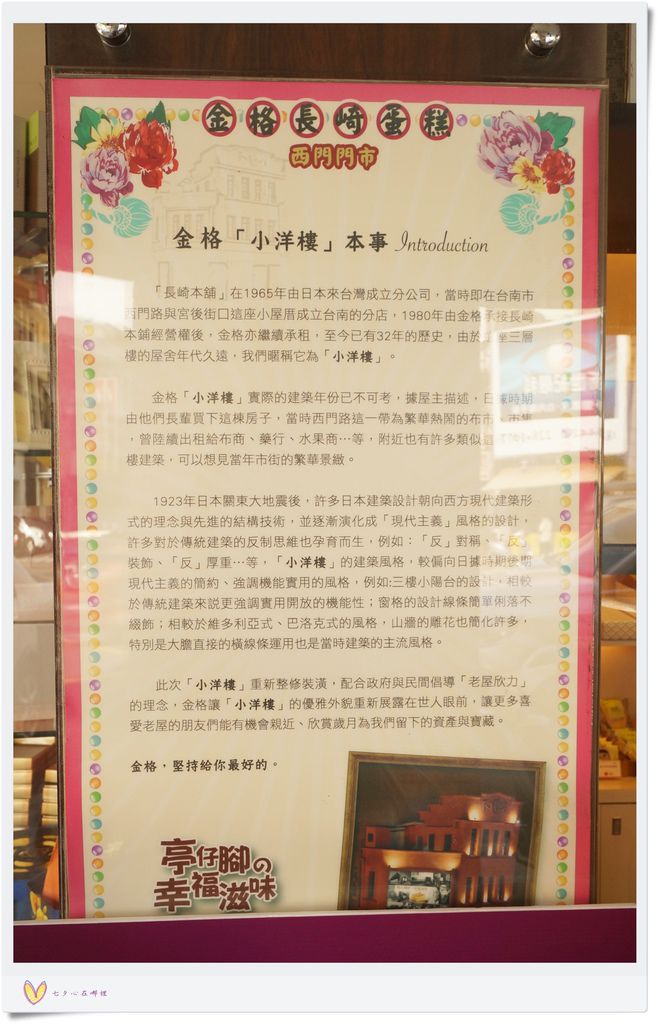 金格長崎蛋糕
西門門市
金格「小洋樓」本事 Introduction
「長崎本舖」在1965年由日本來台灣成立分公司，當時即在台南市
西門路與宮後街口這座小屋厝成立台南的分店，1980年由金格承接長崎
本鋪經營權後，金格亦繼續承租，至今已有32年的歷史，由於 座三層
樓的屋舍年代久遠，我們暱稱它為「小洋樓」。
金格「小洋樓」實際的建築年份已不可考，據屋主描述，日據時期
由他們長輩買下這棟房子，當時西門路這一帶為繁華熱鬧的布市、市集
，曾陸續出租給布商、藥行、水果商…等，附近也有許多類似
樓建築，可以想見當年市街的繁華景緻。
1923年日本關東大地震後，許多日本建築設計朝向西方現代建築形
式的理念與先進的結構技術，並逐漸演化成「現代主義」風格的設計，
許多對於傳統建築的反制思維也孕育而生，例如：「反」對稱、「反」
裝飾、「反」厚重…等，「小洋樓」的建築風格，較偏向日據時期後期
現代主義的簡約、強調機能實用的風格，例如:三樓小陽台的設計，相較
於傳統建築來說更強調實用開放的機能性；窗格的設計線條簡單俐落不
綴飾；相較於維多利亞式、巴洛克式的風格，山牆的雕花也簡化許多，
特別是大膽直接的橫線條運用也是當時建築的主流風格。
此次「小洋樓」重新整修裝潢，配合政府與民間倡導「老屋欣力」
的理念，金格讓「小洋樓」的優雅外貌重新展露在世人眼前，讓更多喜
愛老屋的朋友們能有機會親近、欣賞歲月為我們留下的資產與寶藏。
金格，堅持給你最好的。
亭仔腳の
幸福滋味
七夕心在哪裡